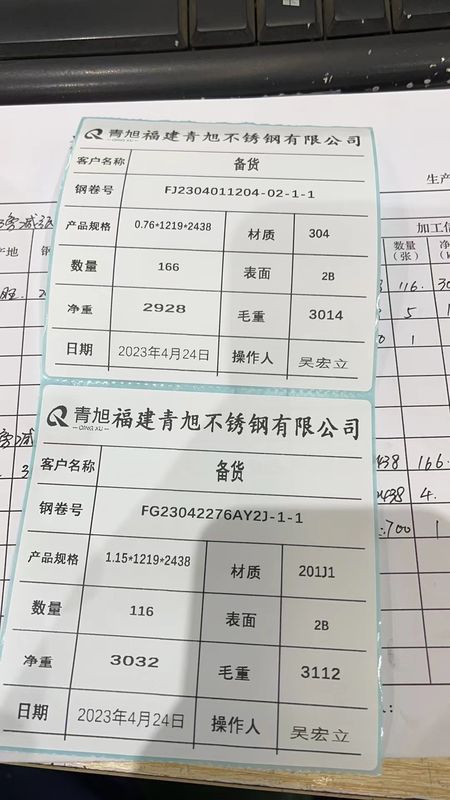 青旭 福建青旭不锈钢有限公司
QING XU
客户名称 备货
钢卷号 FJ2304011204-02-1-1
产品规格 0.76*1219*2438 材质 304
数量 166 表面 2B
净重 2928 毛重 3014
日期 2023年4月24日 操作人 吴宏立
青旭 福建青旭不锈钢有限公司
QING XU
客户名称 备货
钢卷号 FG23042276AY2J-1-1
产品规格 1.15*1219*2438 材质 201J1
数量 116 表面 2B
净重 3032 毛重 3112
日期 2023年4月24日 操作人 吴宏立
生产
加工信
数量
(张)
116.
5
1
438 166.
2438 4.
700 1
产地